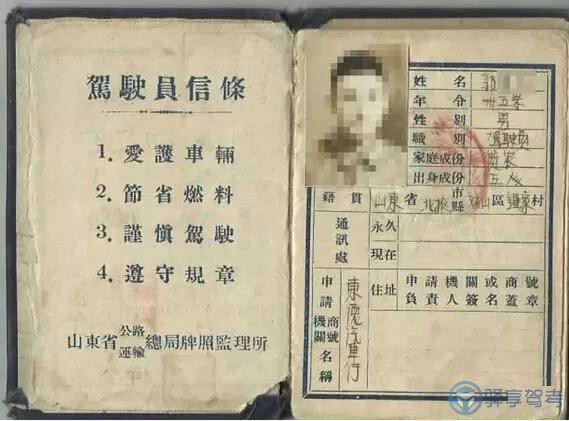 駕駛員信條
1. 愛護車輛
2. 節省燃料
3. 謹慎駕駛
4. 遵守規章
山東省公路運輸總局牌照監理所
姓名 郭
年令 卅五岁
性别 男
職别 駕駛员
家庭成份
出身成份
籍貫 山東省 市縣 區 村
通訊處
永久
現在
申請機關商號名稱
東慶汽車行
住址
申請機關或商號
負責人簽名蓋章
驿享驾考